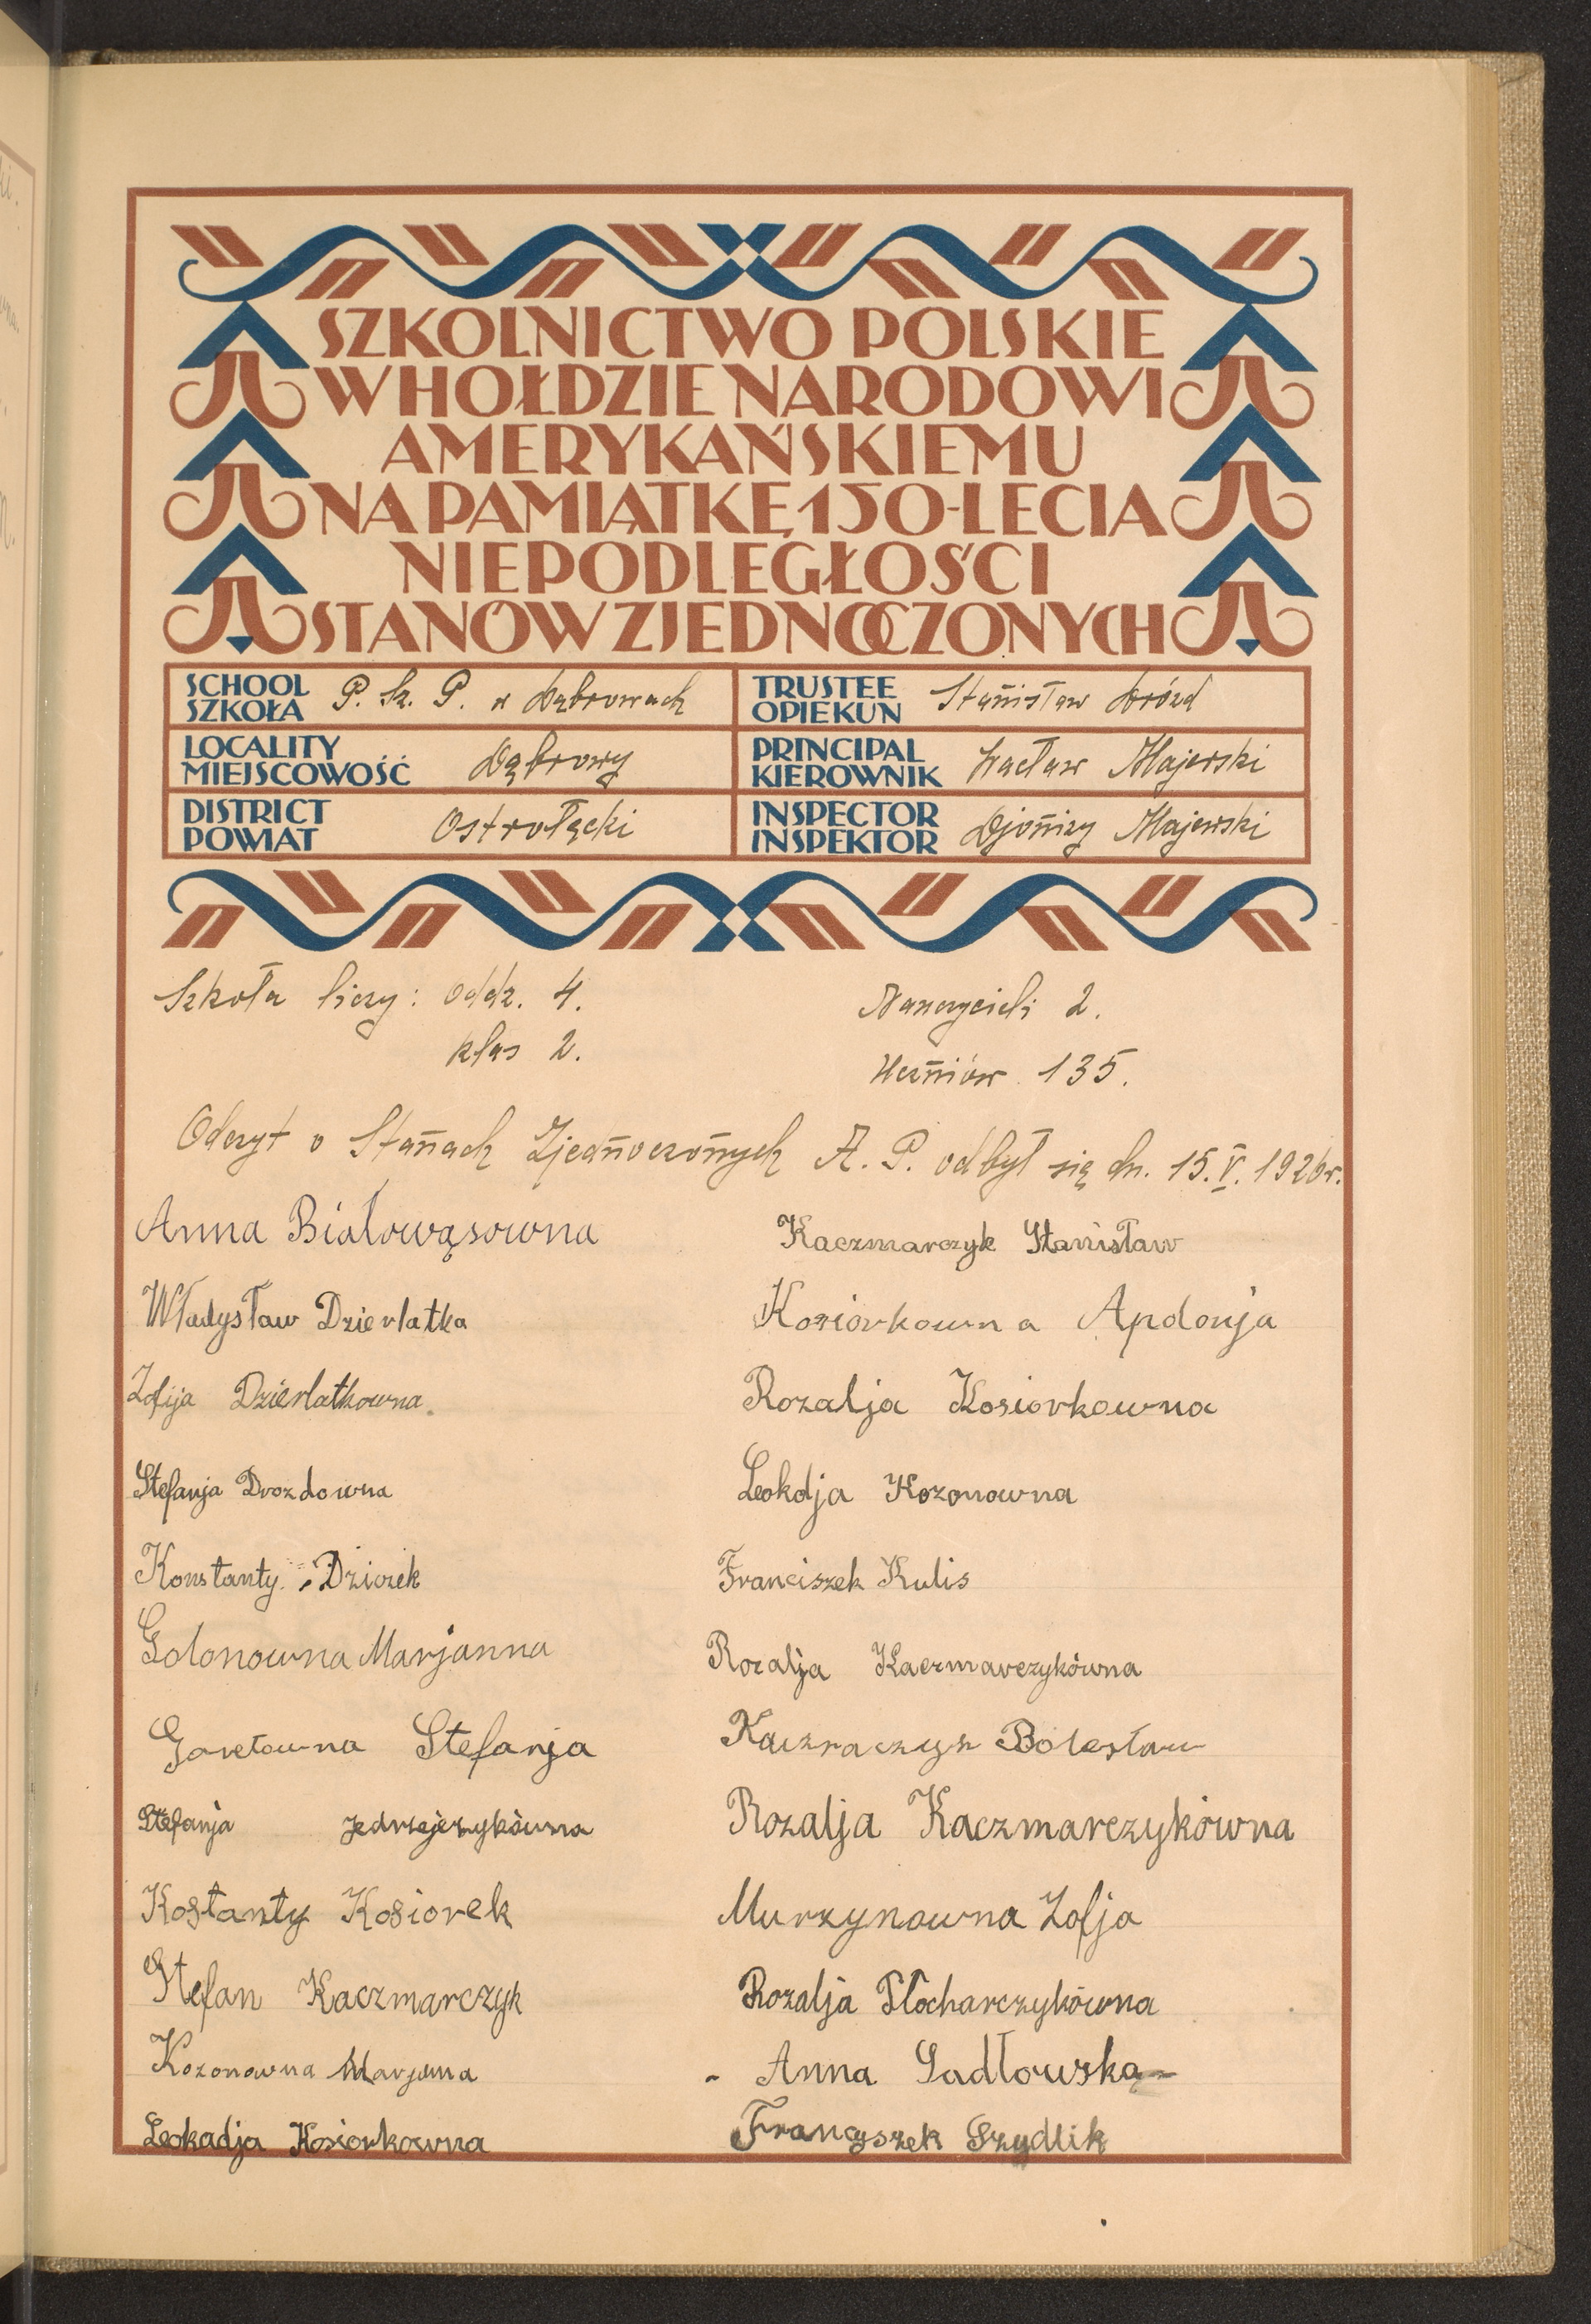 SZKOLNICTWO POLSKIE
W HOŁDZIE NARODOWI
AMERYKAŃSKIEMU
NA PAMIĄTKĘ 150-LECIA
NIEPODLEGŁOŚCI
STANÓW ZJEDNOCZONYCH
SCHOOL
SZKOŁA P. Sz. P. w Dąbrowach
TRUSTEE
OPIEKUN Stanisław Drózd
LOCALITY
MIEJSCOWOŚĆ Dąbrowy
PRINCIPAL
KIEROWNIK Wacław Majewski
DISTRICT
POWIAT Ostrołęcki
INSPECTOR
INSPEKTOR Djonizy Majewski
Szkoła liczy: oddz. 4.
klas 2.
Nauczycieli 2.
Uczniów 135.
Odczyt o Stanach Zjednoczonych A. P. odbył się dn. 15.V.1926r.
Anna Białowąsowna
Władysław Dzierlatka
Zofija Dzierlatkowna.
Stefanja Drozdowna
Konstanty Dziczek
Golonowna Marjanna
Goretowna Stefanja
Stefanja Jedrzejczykówna
Kostanty Kosiorek
Stefan Kaczmarczyk
Kozonowna Marjanna
Leokadja Kosiorkowna
Kaczmarczyk Stanisław
Kosiorkowna Apolonja
Rozalja Kosiorkowna
Leokdja Kozonowna
Franciszek Kulis
Rozalja Kaczmarczykówna
Kaczraczyk Bolesław
Rozalja Kaczmarczykówna
Murzynowna Zofja
Rozalja Płocharczykówna
Anna Sadłowska
Francyszek Szydlik